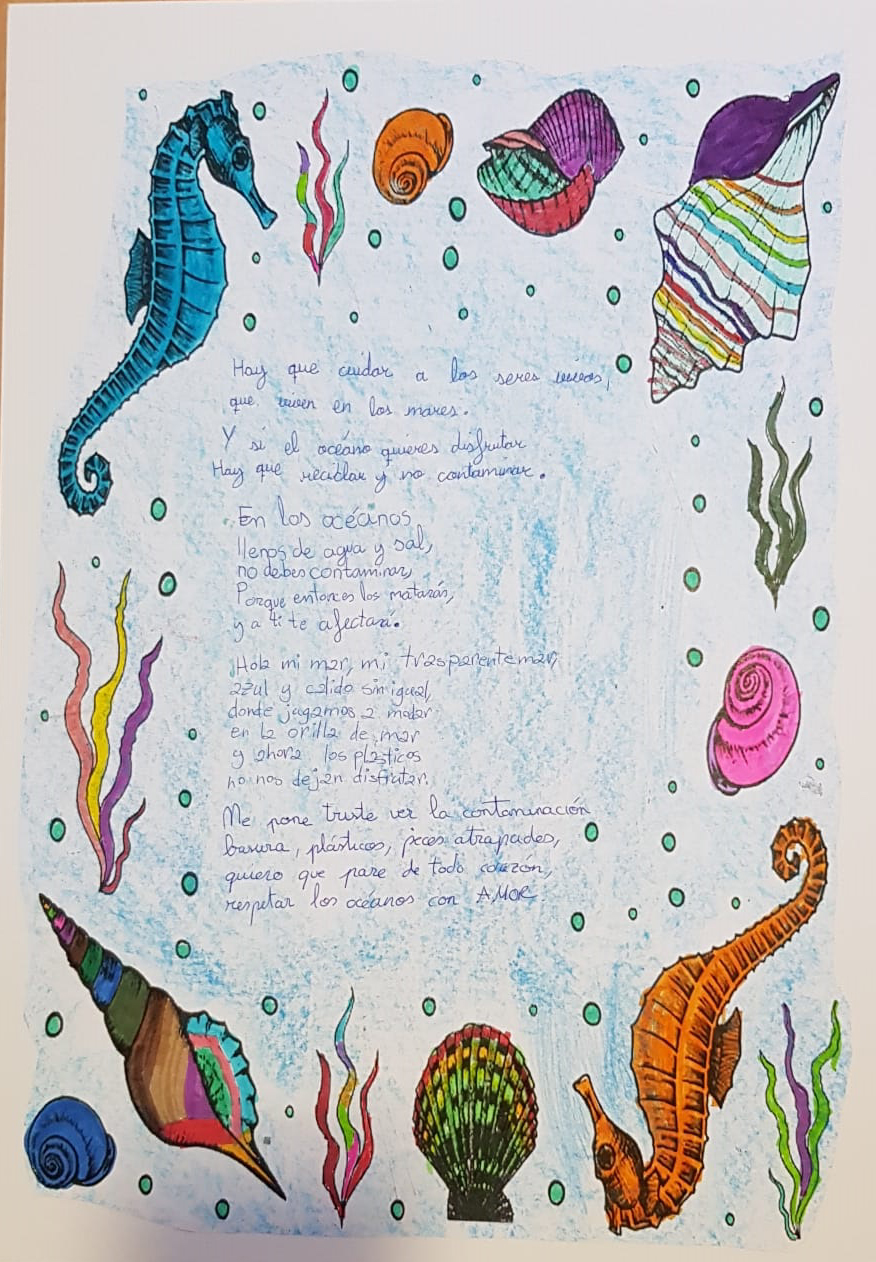 Hay que cuidar a los seres vivos,
que viven en los mares.
Y si el océano quieres disfrutar
Hay que reciclar y no contaminar.
En los océanos,
llenos de agua y sal,
no debes contaminar,
Porque entonces los matarás,
y a ti te afectará.
Hola mi mar, mi trasparente mar,
azul y calido sin igual,
donde jugamos a nadar
en la orilla de mar
y ahora los plasticos
no nos dejan disfrutar.
Me pone triste ver la contaminación
basura, plásticos, peces atrapados,
quiero que pare de todo corazón,
respetar los océanos con AMOR